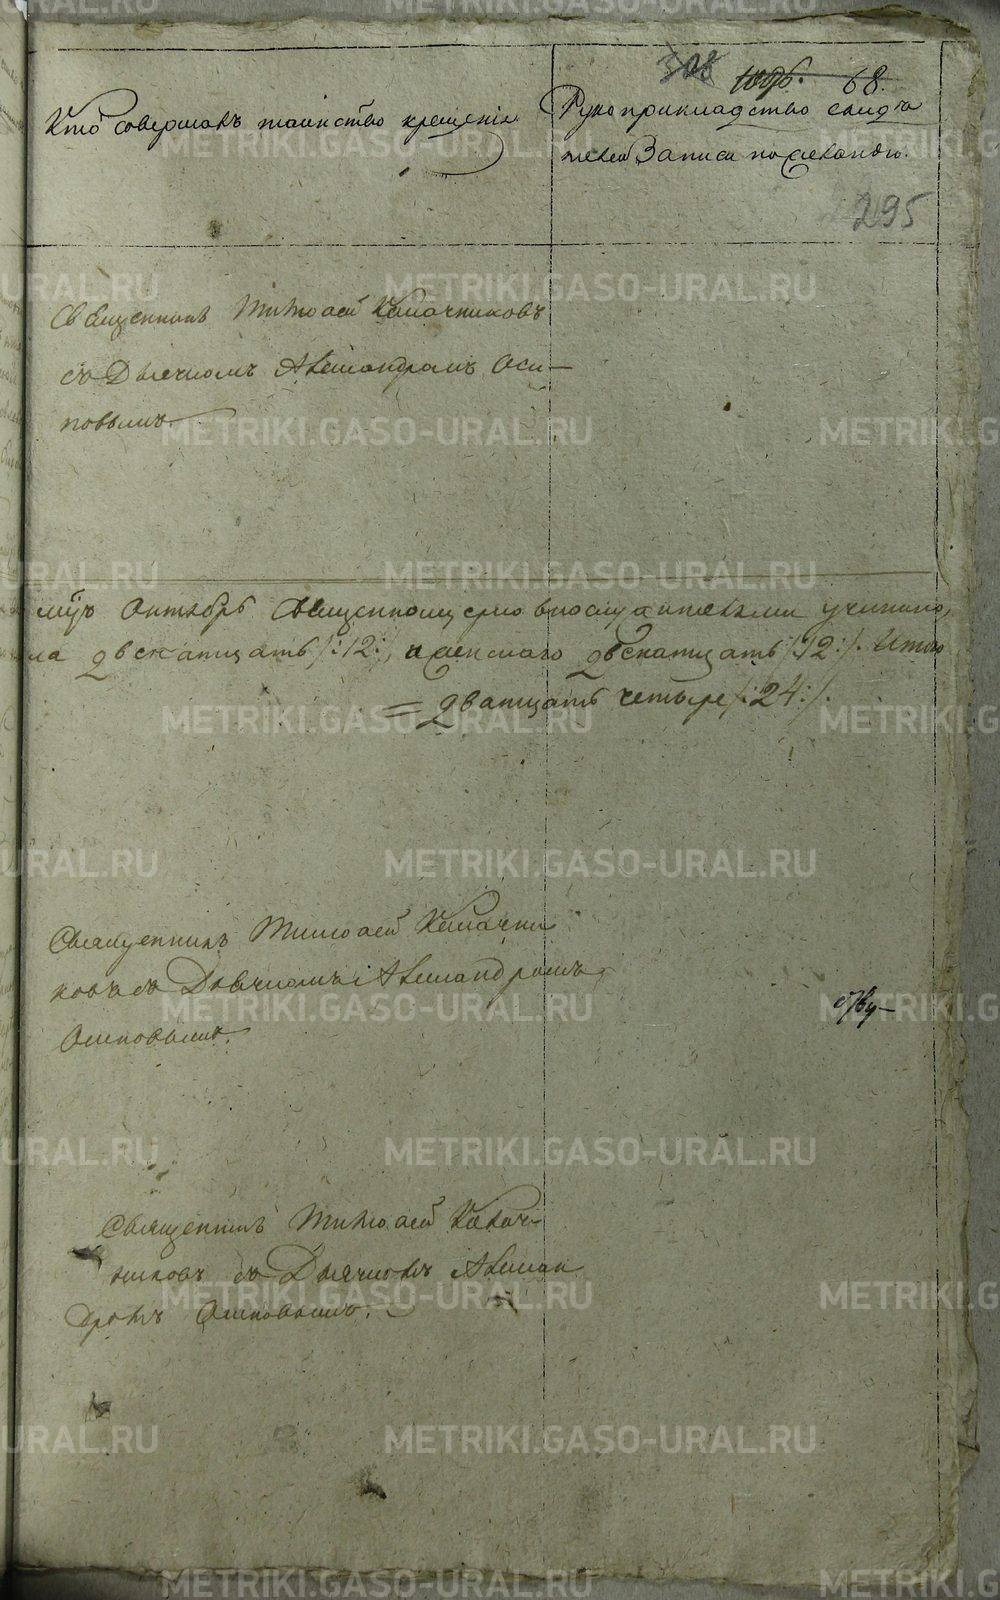 308 1096. 68.
Кто совершалъ таинство крещенія
Рукоприкладство свидѣ
телей Записи по желанію.
295
Священникъ Тимоѳей Калачниковъ
съ Дьячкомъ Александромъ Оси-
повымъ.
Октябрь Священнослужительми учинено,
двенатцать /:12:/, и женскаго двенатцать /:12:/. Итого
= дватцать четыре /:24:/.
Священникъ Тимоѳей Калачни
ковъ съ Дьячкомъ Александромъ
Осиповымъ.
Священникъ Тимоѳей Калач-
никовъ съ Дьячкомъ Алексан
дромъ Осиповымъ.
METRIKI.GASO-URAL.RU